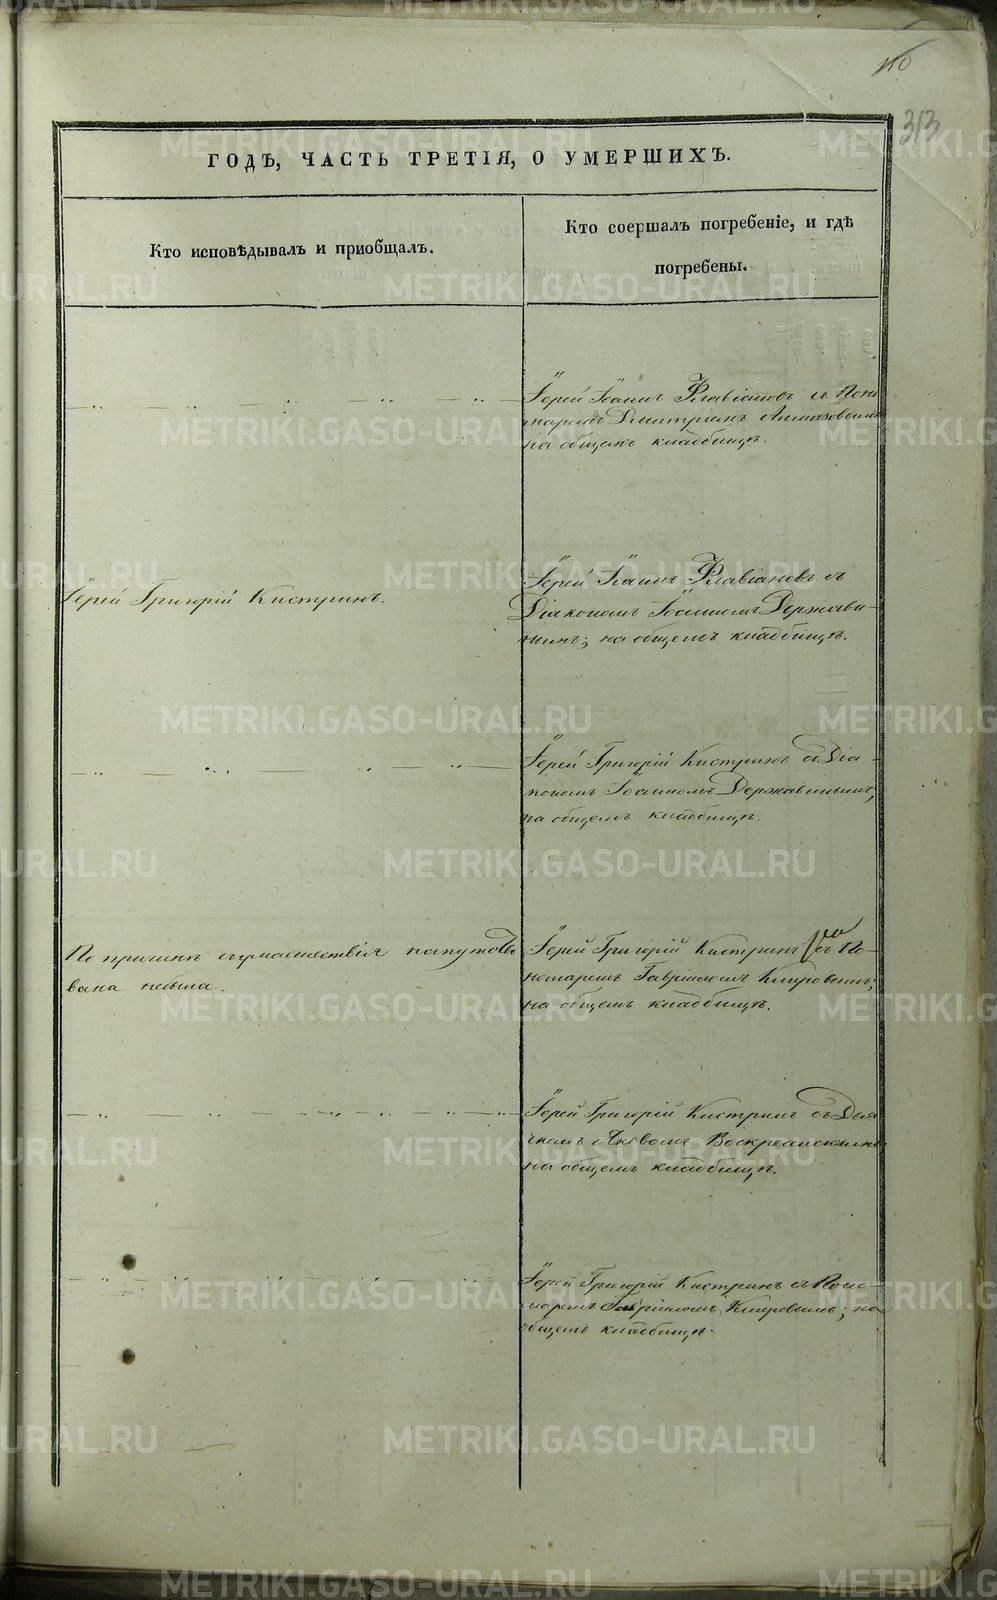 313
ГОДѢ, ЧАСТЬ ТРЕТІЯ, О УМЕРШИХЪ.
Кто исповѣдывалъ и пріобщалъ.
Кто соершалъ погребеніе, и гдѣ
погребены.
Іерей Іоаннъ Флавіановъ съ Поно
маремъ Димитріемъ
на общемъ кладбищѣ.
Іерей Григорій Кистринъ.
Іерей Іоаннъ Флавіановъ съ
Діакономъ Іоанномъ Держави-
нымъ; на общемъ кладбищѣ.
Іерей Григорій Кистринъ съ Діа-
кономъ Іоанномъ Державинымъ,
на общемъ кладбищѣ.
По причинѣ сумасшествія напутство
вана небыла.
Іерей Григорій Кистринъ съ По-
номаремъ Гавріиломъ Кипровымъ;
на общемъ кладбищѣ.
Іерей Григорій Кистринъ съ Дья
чкомъ Яковомъ Воскресенскимъ
на общемъ кладбищѣ.
Іерей Григорій Кистринъ съ Поно-
маремъ Гавріиломъ Кипровымъ; на
общемъ кладбищѣ.
METRIKI.GASO-URAL.RU